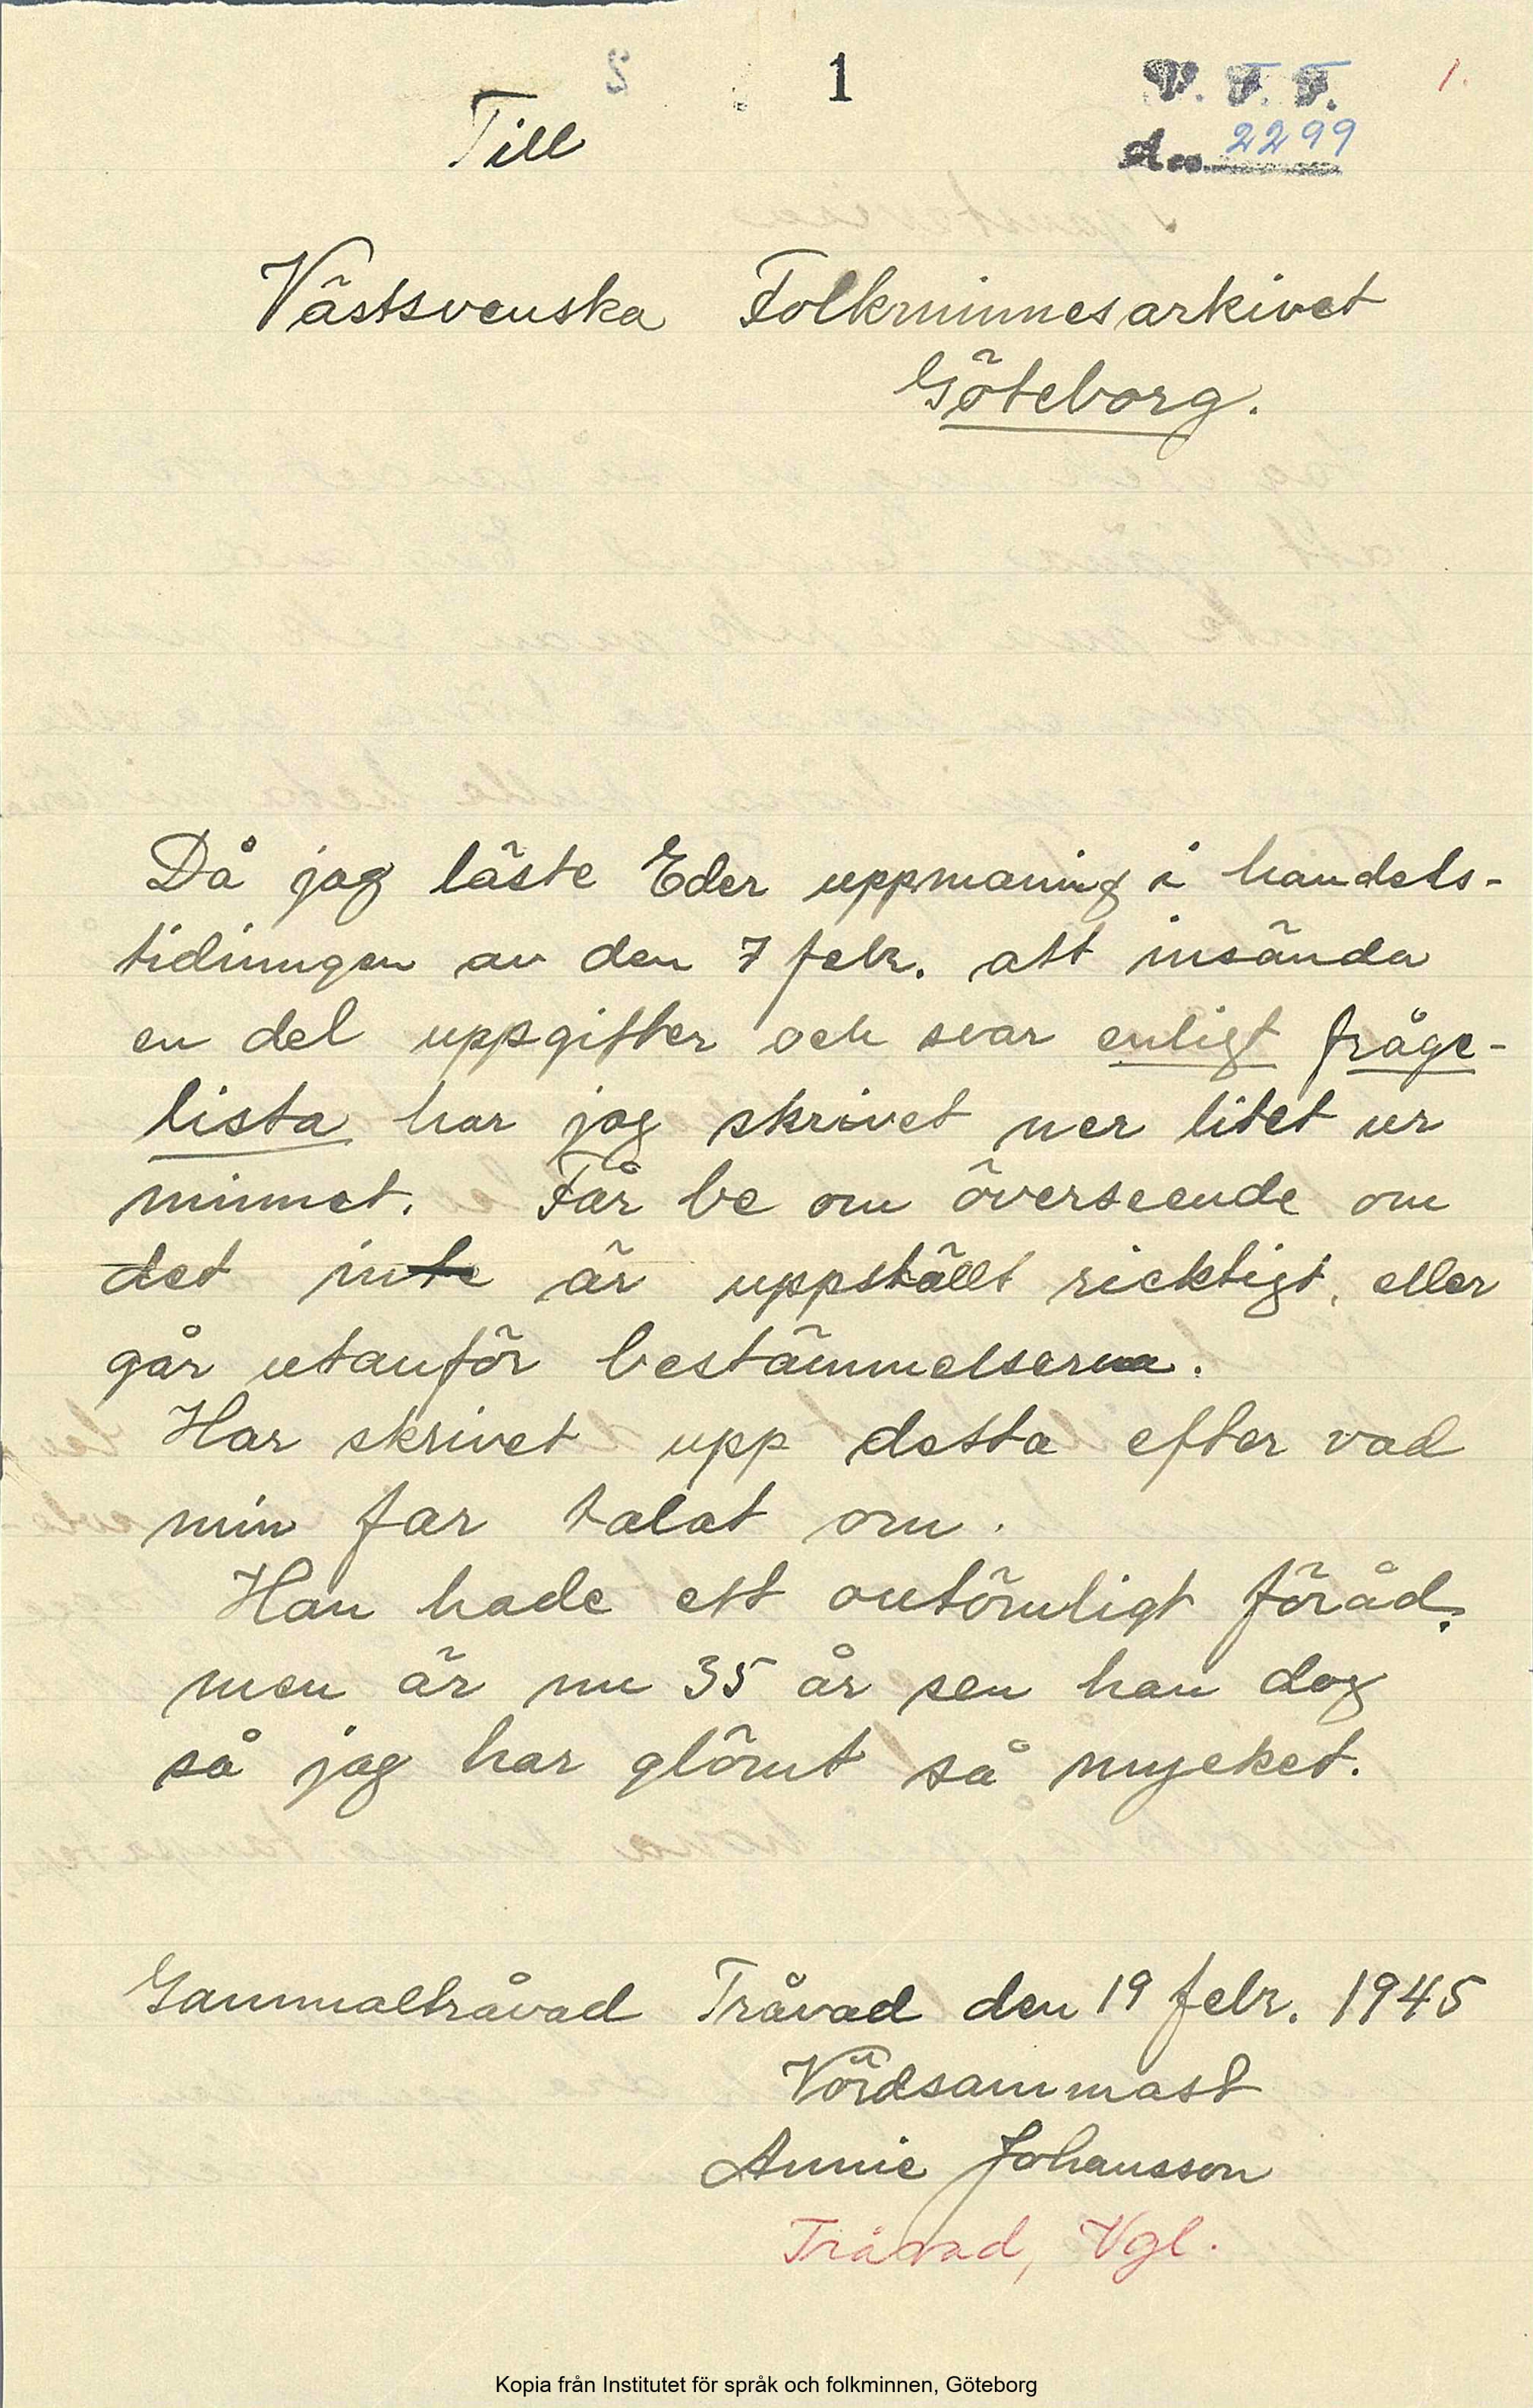 1
V. F. F. 1.
Till
d:o 2299
Västsvenska Folkminnesarkivet
Göteborg.
Då jag läste Eder uppmaning i handels-
tidningen av den 7 febr. att insända
en del uppgifter och svar enligt fråge-
lista har jag skrivet ner litet ur
minnet. Får be om överseende om
det inte är uppställt ricktigt, eller
går utanför bestämmelserna.
Har skrivet upp detta efter vad
min far talat om.
Han hade ett outömligt föråd.
men är nu 35 år sen han dog
så jag har glömt så mycket.
Gammaltråvad Tråvad den 19 febr. 1945
Vördsammast
Annie Johansson
Tråvad, Vgl.
Kopia från Institutet för språk och folkminnen, Göteborg